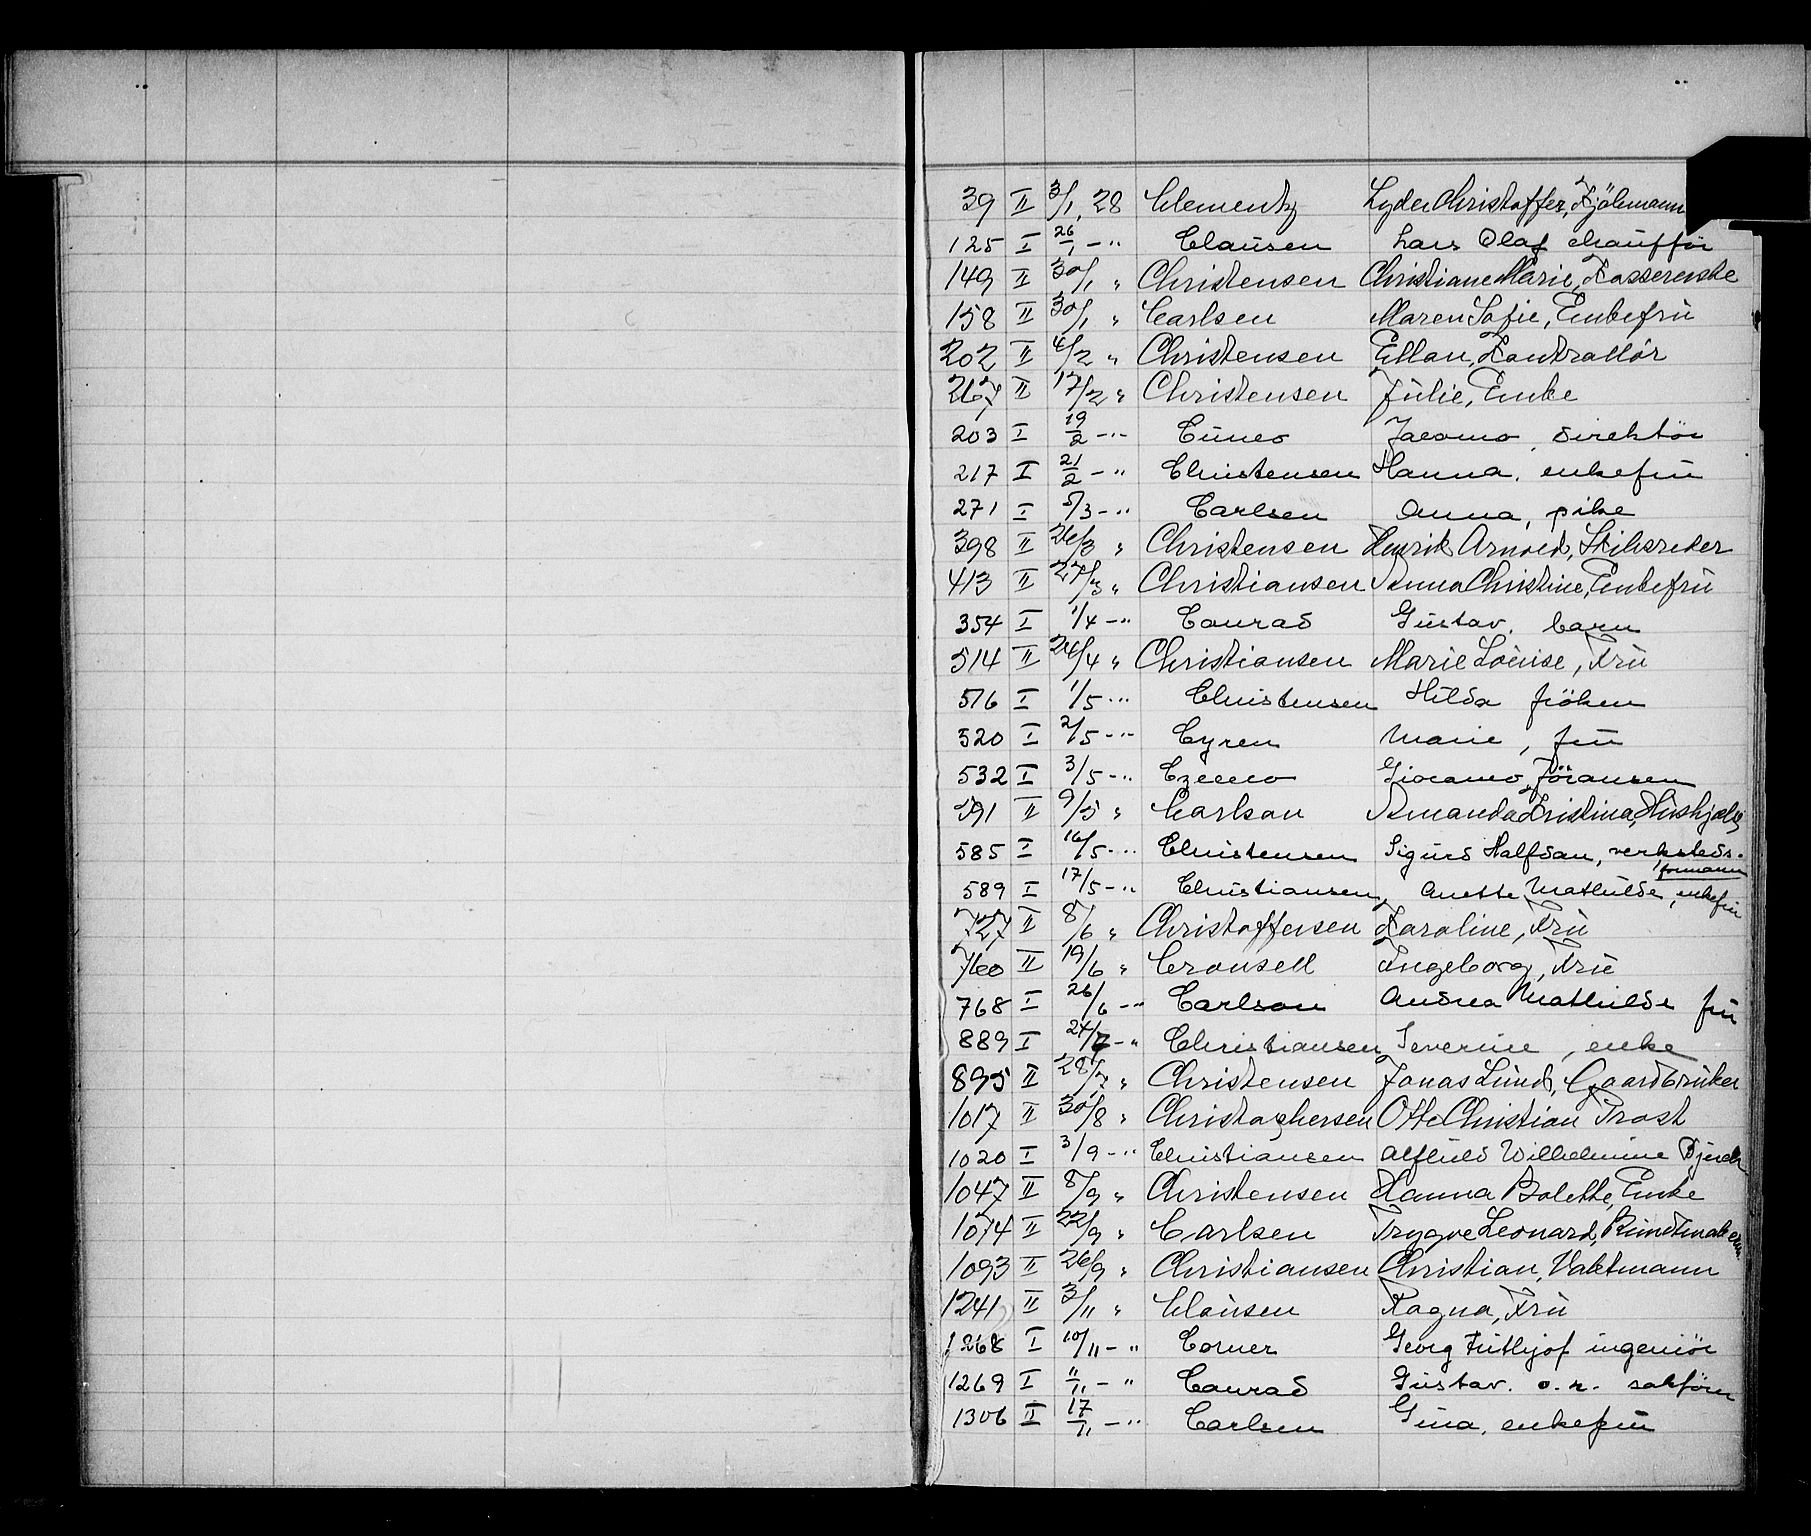 39 II 3/1 28 Clementz Lyder Christoffer, Kjöbmann
125 I 26/1 -" Clausen Lars Olaf chauffør
149 II 30/1 " Christensen Christiane Marie, Kassererske
158 II 30/1 " Carlsen Maren Sofie, Enkefrü
202 II 4/2 " Christensen Ellan, Kontrollör
267 II 17/2 " Christensen Julie, Enke
203 I 19/2 -" Cuneo Jacomo direktör
217 I 21/2 -" Christensen Hanna, enkefrü
271 I 5/3 -" Carlsen Anna, pike
398 II 26/3 " Christensen Henrik Arnold, Skibsreder
413 II 27/3 " Christiansen Anna Christine, Enkefrü
354 I 1/4 -" Conrad Güstav, barn
514 II 24/4 " Christiansen Marie Loüise, Frü
516 I 1/5 -" Christensen Hilda fröken
520 I 2/5 -" Cyren Marie, frü
532 I 3/5 -" Giocamo Jöransen
591 II 9/5 " Carlson Amanda Kristina, Hüshjælp
585 I 16/5 -" Christensen Sigurd Halfdan, verksteds-
formann
589 I 17/5 -" Christiansen, Anette Mathilde, enkefrü
727 II 8/6 " Christoffersen Karoline, Frü
760 II 19/6 " Cronsell Ingeborg, Frü
768 I 26/6 -" Carlson Andrea Mathilde frü
889 I 24/7 -" Christiansen Severine, enke
895 II 28/7 " Christensen Jonas Lünd, Gaardbrüker
1017 II 30/8 " Christophersen Otto Christian Trost
1020 I 3/9 -" Christiansen Alfhild Wilhelmine
1047 II 8/9 " Christensen Hanna Bolette, Enke
1074 II 22/9 " Carlsen Trygve Leonard, Bündtmaker
1093 II 26/9 " Christiansen Christian, Vaktmann
1241 II 3/11 " Claüsen Ragna, Frü
1268 I 10/11 -" Corner Georg Frithjof ingeniör
1269 I 11/11 -" Conrad Güstav. o.r. sakförer
1306 I 17/11 -" Carlsen Gina, enkefrü